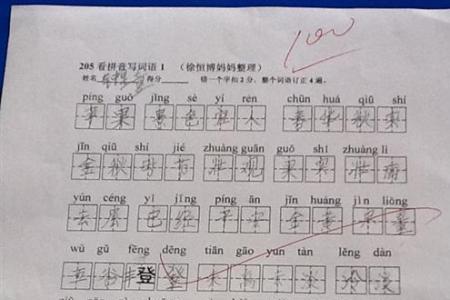 100
205 看拼音写词语 1 （徐恒博妈妈整理）
姓名 得分 错一个字扣 2 分，整个词语订正 4 遍。
píng guǒ jǐng sè yí rén chūn huá qiū shí
苹果 景色宜人 春华秋实
jīn qiū shí jié zhuàng guān guǒ shí zhuàng lì
金秋时节 壮观 果实 壮丽
yún céng yǐ jīng píng ān jīn huáng jìn liōng
云层 已经 平安 金黄
wǔ gǔ fēng dēng tiān gāo yun tàn lěng dàn
五谷丰登登 天高云淡 冷淡